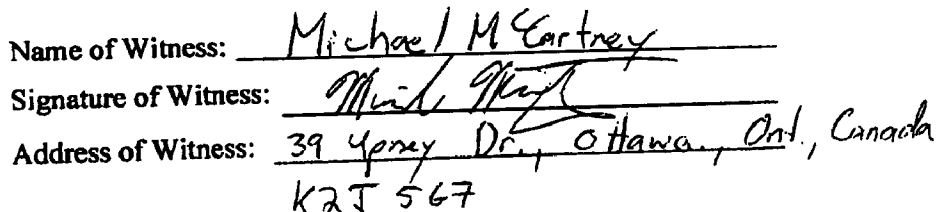 Name of Witness: Michael McCartney
Signature of Witness:
Address of Witness: 39 Yoney Dr., Ottawa., Ont., Canada
K2J 5G7